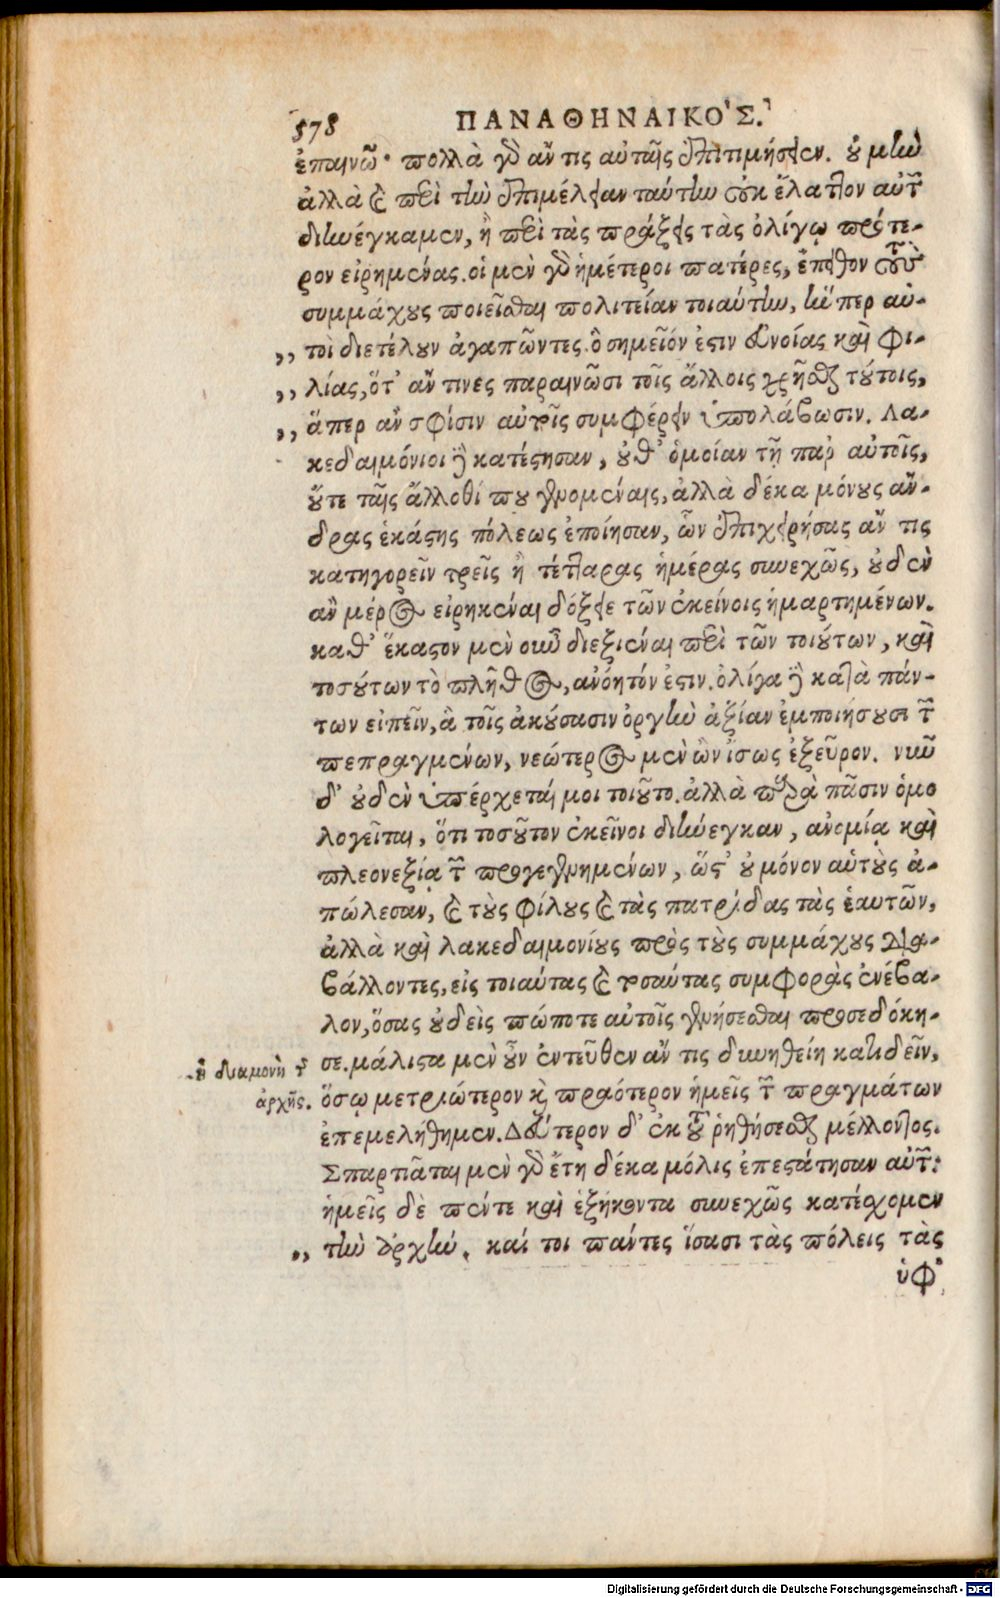 578 ΠΑΝΑΘΗΝΑΙΚΟ'Σ.
ἐπαινῶ· πολλὰ γὸ ἄν τις αὐταῖς ἐπιτιμήσειεν. οὐ μὴν
ἀλλὰ καὶ περὶ τὴν ἐπιμέλειαν ταύτην οὐκ ἔλαττον αὐτῶν
διηνέγκαμεν, ἢ περὶ τὰς πράξεις τὰς ὀλίγῳ πρότε-
ρον εἰρημένας. οἱ μὲν γὸ ἡμέτεροι πατέρες, ἔπειθον τοὺς
συμμάχους ποιεῖσθαι πολιτείαν τοιαύτην, ἥνπερ αὐ-
,, τοὶ διετέλουν ἀγαπῶντες. ὃ σημεῖόν ἐστιν εὐνοίας καὶ φι-
,, λίας, ὅτ' ἄν τινες παραινῶσι τοῖς ἄλλοις χρῆσθαι τούτοις,
,, ἅπερ ἂν σφίσιν αὐτοῖς συμφέρειν ὑπολάβωσιν. Λα-
κεδαιμόνιοι δὲ κατέστησαν, οὔθ' ὁμοίαν τῇ παρ' αὐτοῖς,
οὔτε ταῖς ἄλλοθί που γενομέναις, ἀλλὰ δέκα μόνους ἄν-
δρας ἑκάστης πόλεως ἐποίησαν, ὧν ἐπιχειρήσας ἄν τις
κατηγορεῖν τρεῖς ἢ τέτταρας ἡμέρας συνεχῶς, οὐδὲν
ἂν μέρος εἰρηκέναι δόξειε τῶν ἐκείνοις ἡμαρτημένων.
καθ' ἕκαστον μὲν οὖν διεξιέναι περὶ τῶν τοιούτων, καὶ
τοσούτων τὸ πλῆθος, ἀνόητόν ἐστιν. ὀλίγα δὲ κατὰ πάν-
των εἰπεῖν, ἃ τοῖς ἀκούσασιν ὀργὴν ἀξίαν ἐμποιήσουσι τῶν
πεπραγμένων, νεώτερος μὲν ὢν ἴσως ἐξεῦρον. νῦν
δ' οὐδὲν ὑπέρχεταί μοι τοιοῦτο. ἀλλὰ παρὰ πᾶσιν ὁμο
λογεῖται, ὅτι τοσοῦτον ἐκεῖνοι διήνεγκαν, ἀνομίᾳ καὶ
πλεονεξίᾳ τῶν προγεγενημένων, ὥστ' οὐ μόνον αὑτοὺς ἀ-
πώλεσαν, καὶ τοὺς φίλους καὶ τὰς πατρίδας τὰς ἑαυτῶν,
ἀλλὰ καὶ λακεδαιμονίους πρὸς τοὺς συμμάχους δια-
βάλλοντες, εἰς τοιαύτας καὶ τοσαύτας συμφορὰς ἐνέβα-
λον, ὅσας οὐδεὶς πώποτε αὐτοῖς γενήσεσθαι προσεδόκη-
σε. μάλιστα μὲν οὖν ἐντεῦθεν ἄν τις δυνηθείη κατιδεῖν,
ἡ διαμονὴ τῆς
ἀρχῆς.
ὅσῳ μετριώτερον καὶ πραότερον ἡμεῖς τῶν πραγμάτων
ἐπεμελήθημεν. Δεύτερον δ' ἐκ τοῦ ῥηθήσεσθαι μέλλοντος.
Σπαρτιᾶται μὲν γὸ ἔτη δέκα μόλις ἐπεστάτησαν αὐτῶν:
ἡμεῖς δὲ πέντε καὶ ἑξήκοντα συνεχῶς κατέσχομεν
,, τὴν ἀρχήν. καί τοι πάντες ἴσασι τὰς πόλεις τὰς
ὑφ'
Digitalisierung gefördert durch die Deutsche Forschungsgemeinschaft - DFG